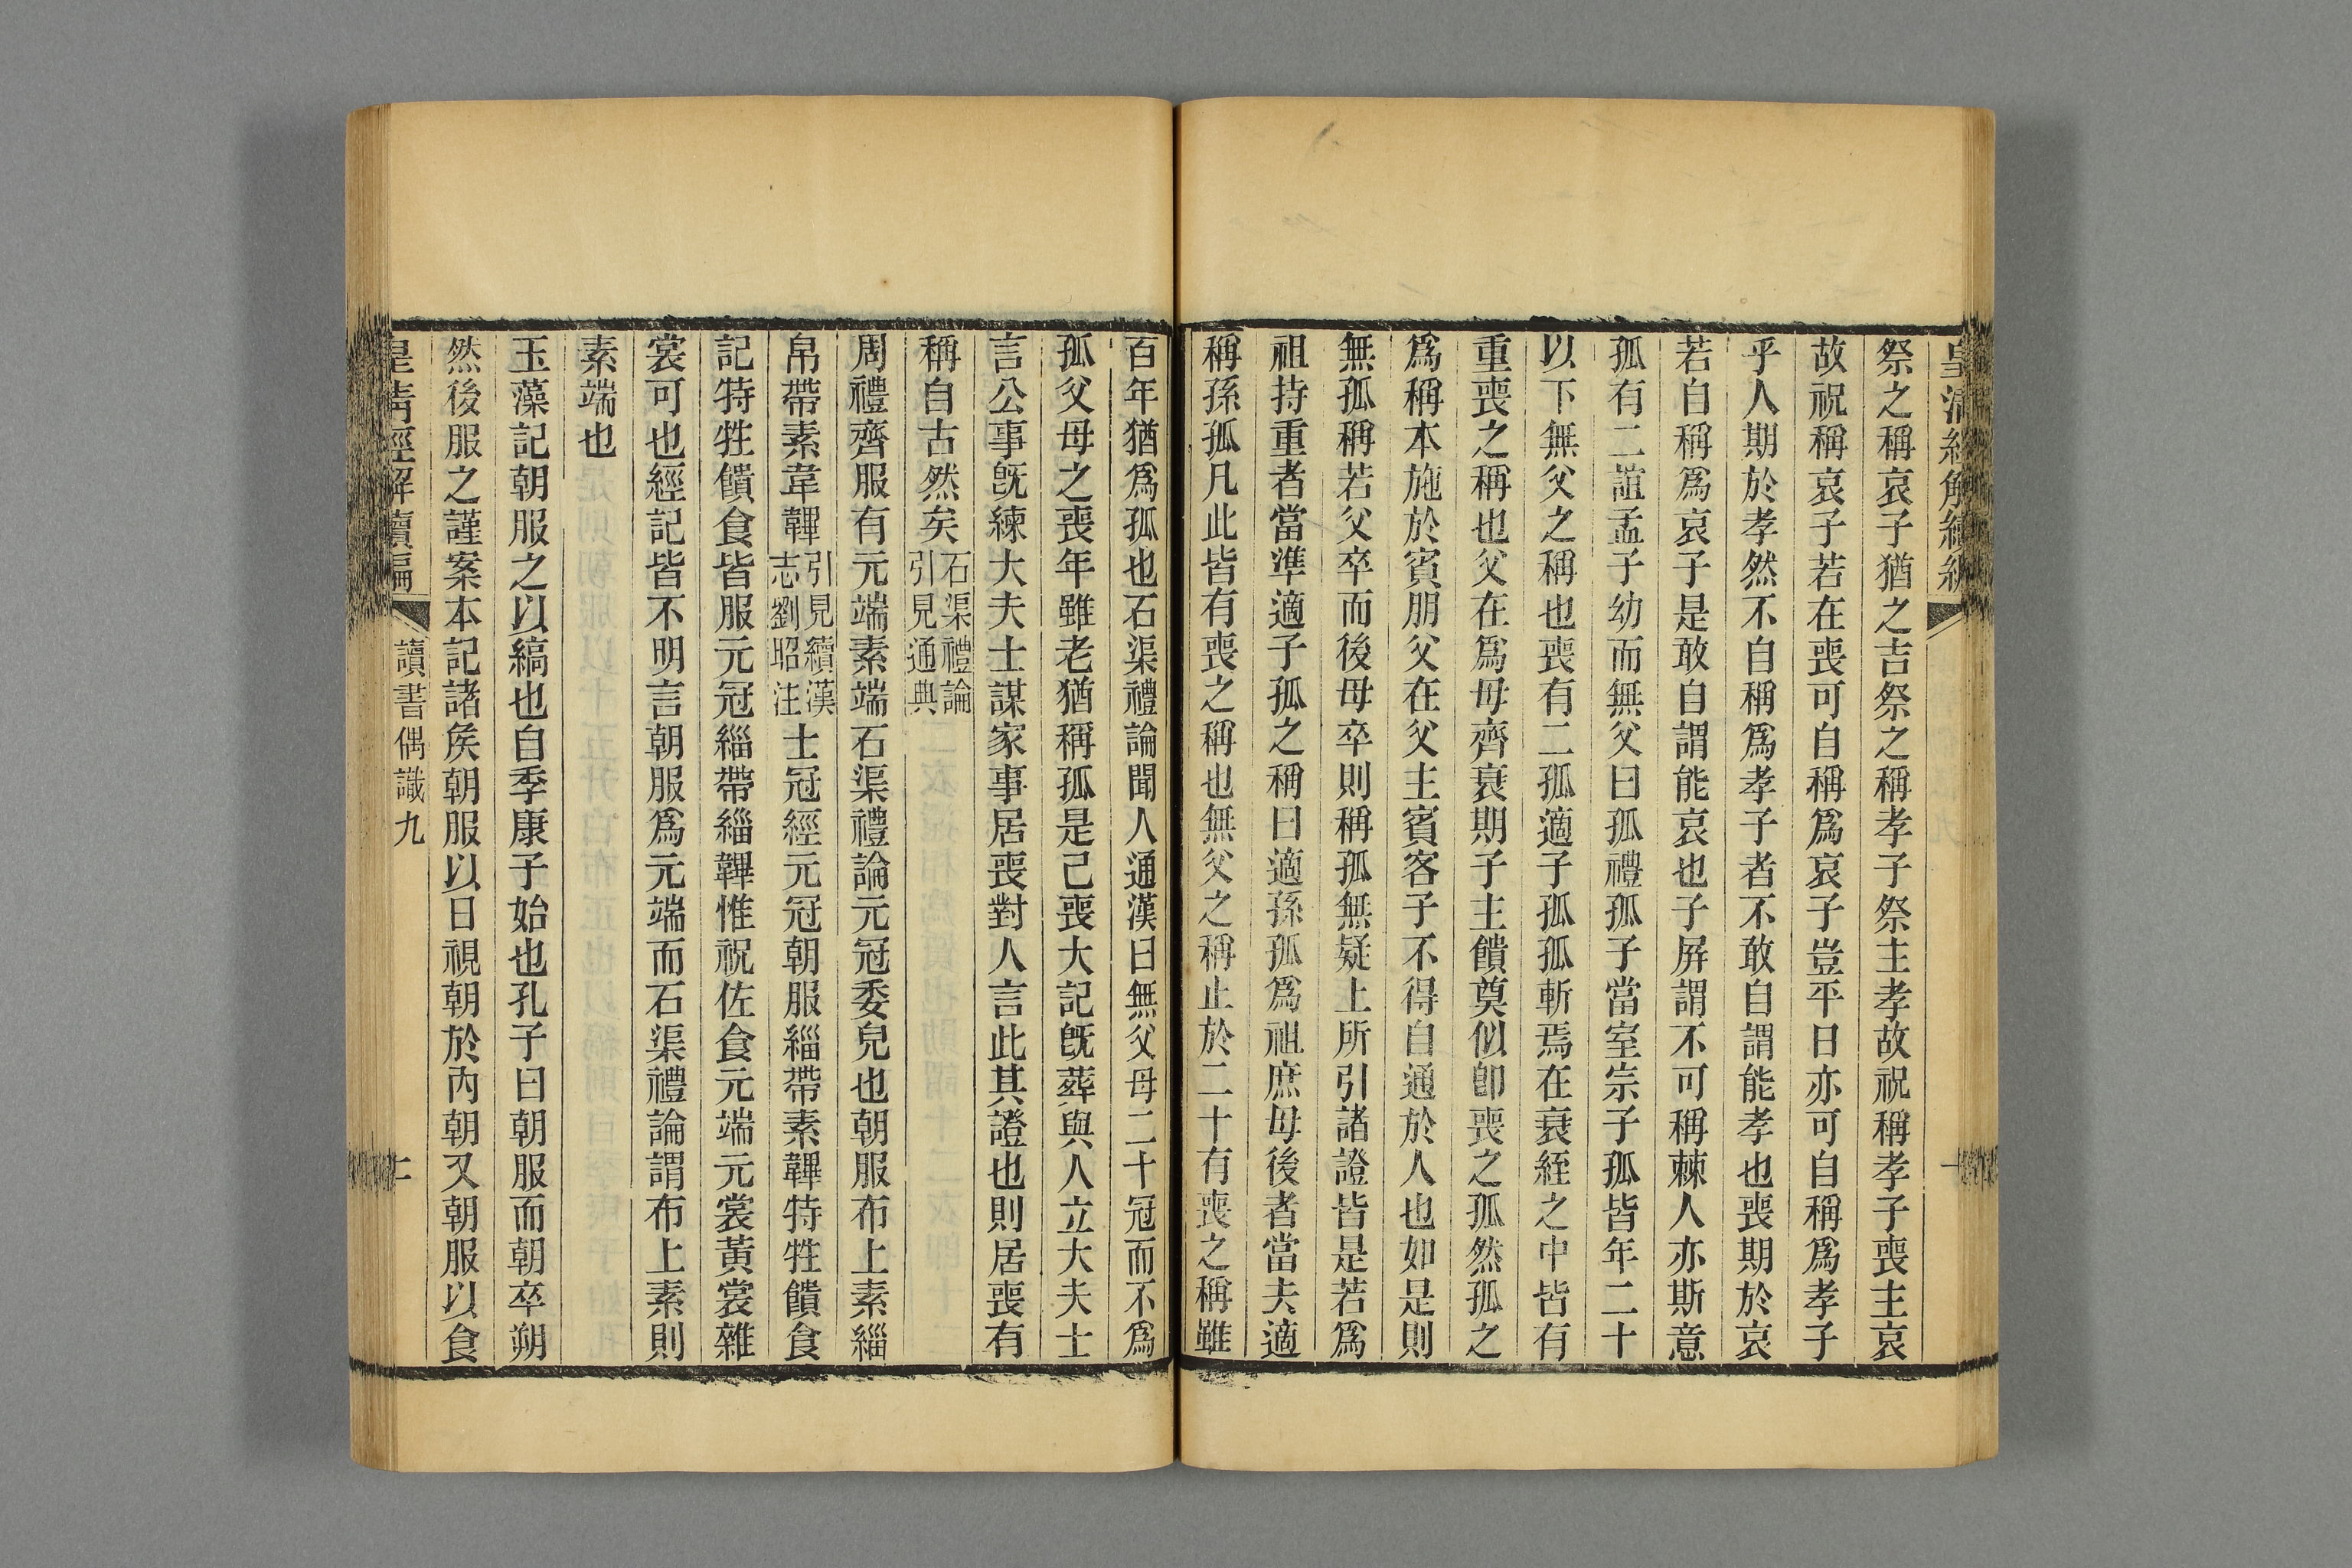 皇清經解續編
祭之稱哀子猶之吉祭之稱孝子祭主孝故祝稱孝子喪主哀
故祝稱哀子若在喪可自稱爲哀子豈平日亦可自稱爲孝子
乎人期於孝然不自稱爲孝子者不敢自謂能孝也喪期於哀
若自稱爲哀子是敢自謂能哀也子屏謂不可稱棘人亦斯意
孤有二誼孟子幼而無父曰孤禮孤子當室宗子孤皆年二十
以下無父之稱也喪有二孤適子孤孤斬焉在衰絰之中皆有
重喪之稱也父在爲母齊衰期子主饋奠似卽喪之孤然孤之
爲稱本施於賓朋父在父主賓客子不得自通於人也如是則
無孤稱若父卒而後母卒則稱孤無疑上所引諸證皆是若爲
祖持重者當準適子孤之稱曰適孫孤爲祖庶母後者當夫適
稱孫孤凡此皆有喪之稱也無父之稱止於二十有喪之稱雖
百年猶爲孤也石渠禮論聞人通漢曰無父母二十冠而不爲
孤父母之喪年雖老猶稱孤是己喪大記旣葬與人立大夫士
言公事旣練大夫士謀家事居喪對人言此其證也則居喪有
稱自古然矣石渠禮論引見通典
周禮齊服有元端素端石渠禮論元冠委皃也朝服布上素緇
帛帶素韋韠引見續漢志劉昭注士冠經元冠朝服緇帶素韠特牲饋食
記特牲饋食皆服元冠緇帶緇韠惟祝佐食元端元裳黃裳雜
裳可也經記皆不明言朝服爲元端而石渠禮論謂布上素則
素端也
玉藻記朝服之以縞也自季康子始也孔子曰朝服而朝卒朔
然後服之謹案本記諸矦朝服以日視朝於內朝又朝服以食
皇清經解續編
讀書偶識九